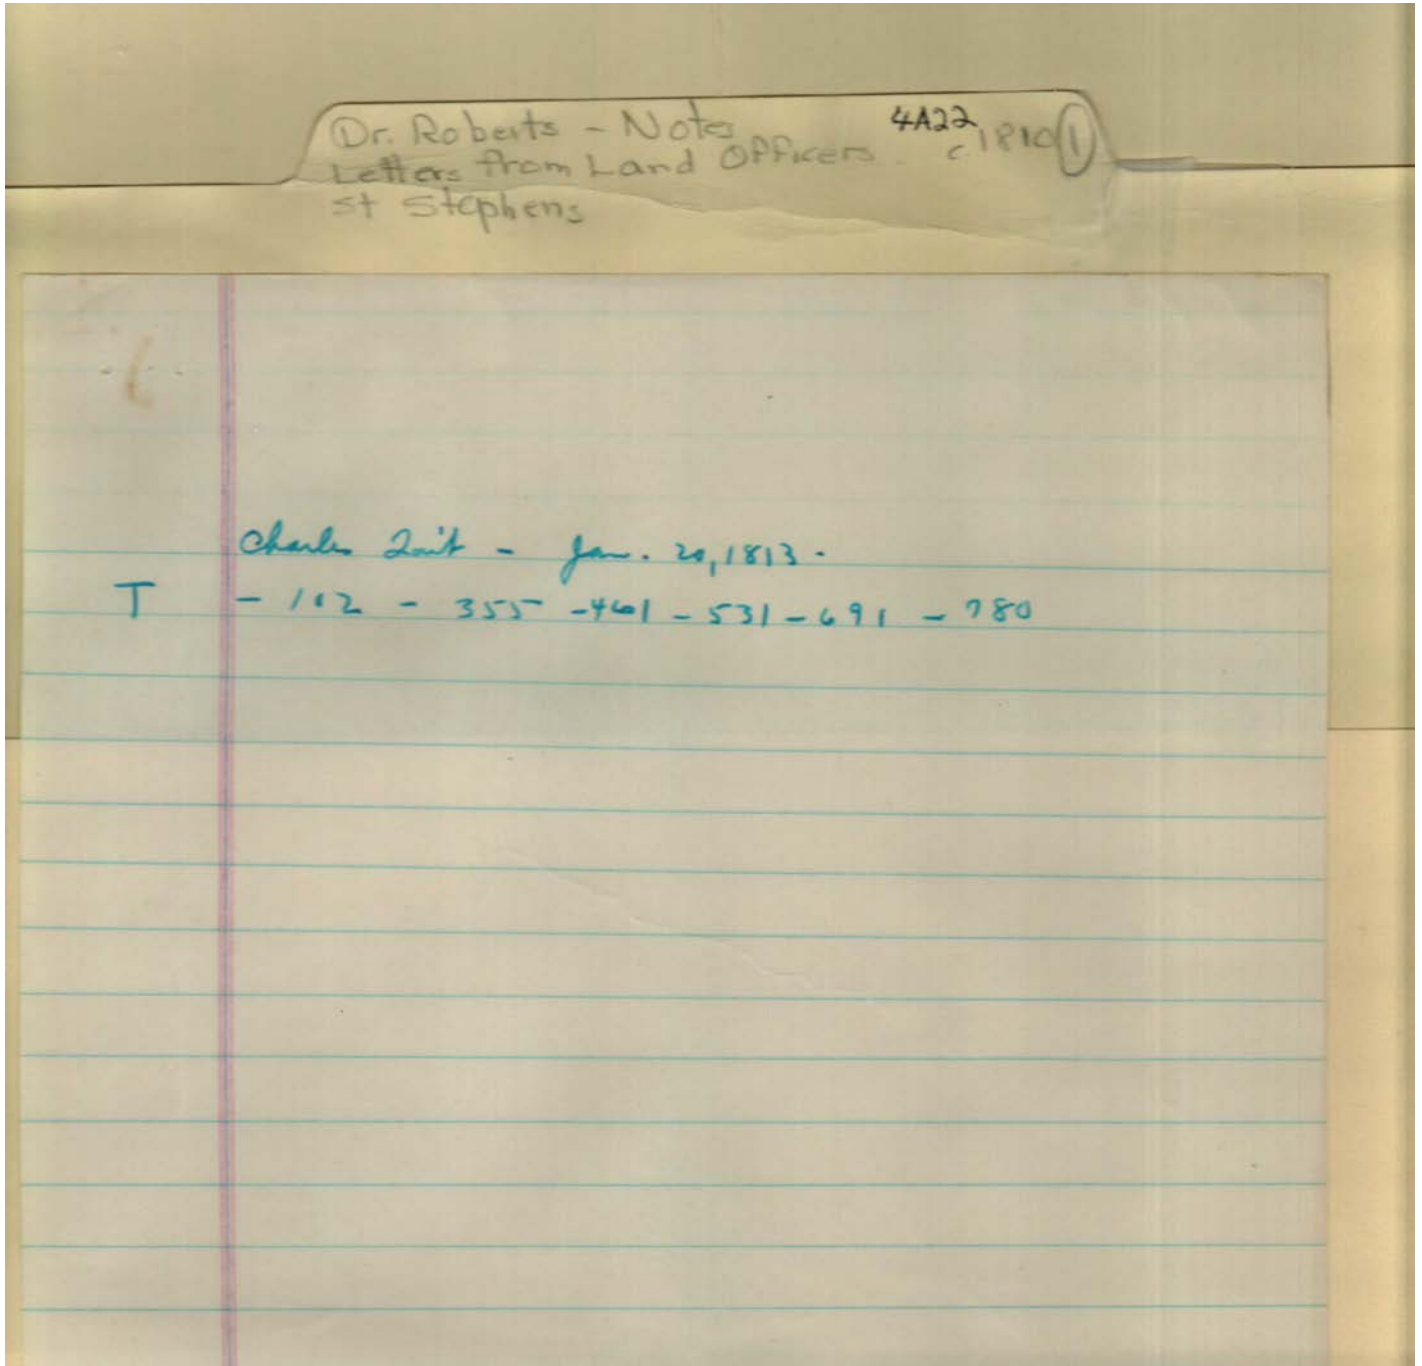 Dr. Roberts - Notes 4A22 c. 1810 1
Letters from Land Officers.
St Stephens
Charles Tait - Jan. 20, 1813.
T - 102 - 355 - 461 - 531 - 691 - 780